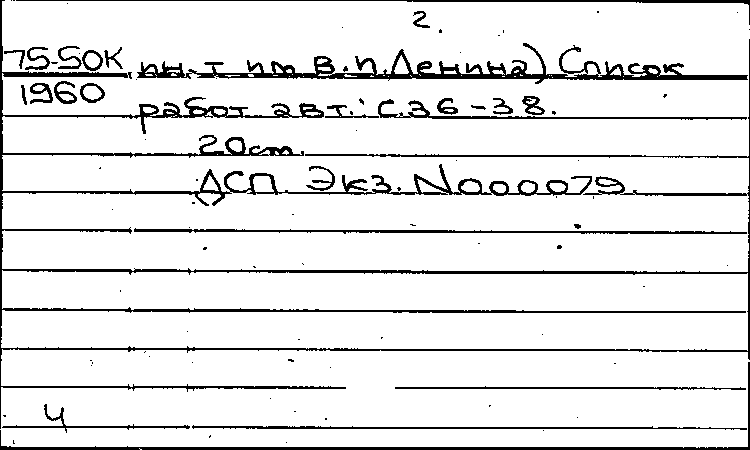 2.
75-50К ин.-т им В.И.Ленина) Список
1960
работ авт.: с.36-38.
20 cm.
ДСП. Экз. N000079.
4